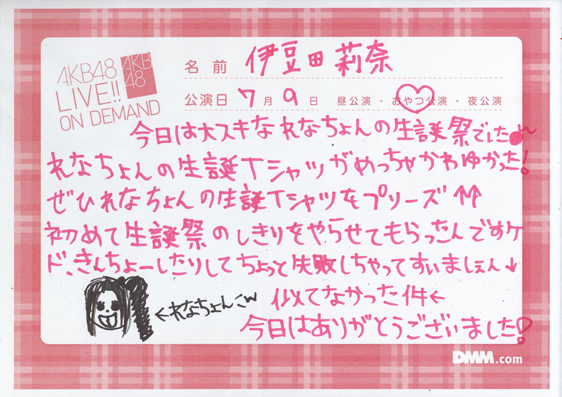 AKB48
LIVE!!
ON DEMAND
AKB
48
名前 伊豆田莉奈
公演日 7月9日 昼公演・おやつ公演・夜公演
今日は大スキなれなちょんの生誕祭でした
れなちょんの生誕Tシャツがめっちゃかわゆかった!
ぜひれなちょんの生誕Tシャツをプリーズ↑↑
初めて生誕祭のしきりをやらせてもらったんですケ
ド、きんちょーしたりしてちょっと失敗しちゃってすいましぇん↓
←れなちょんこw
似てなかった件←
今日はありがとうございました!
DMM.com